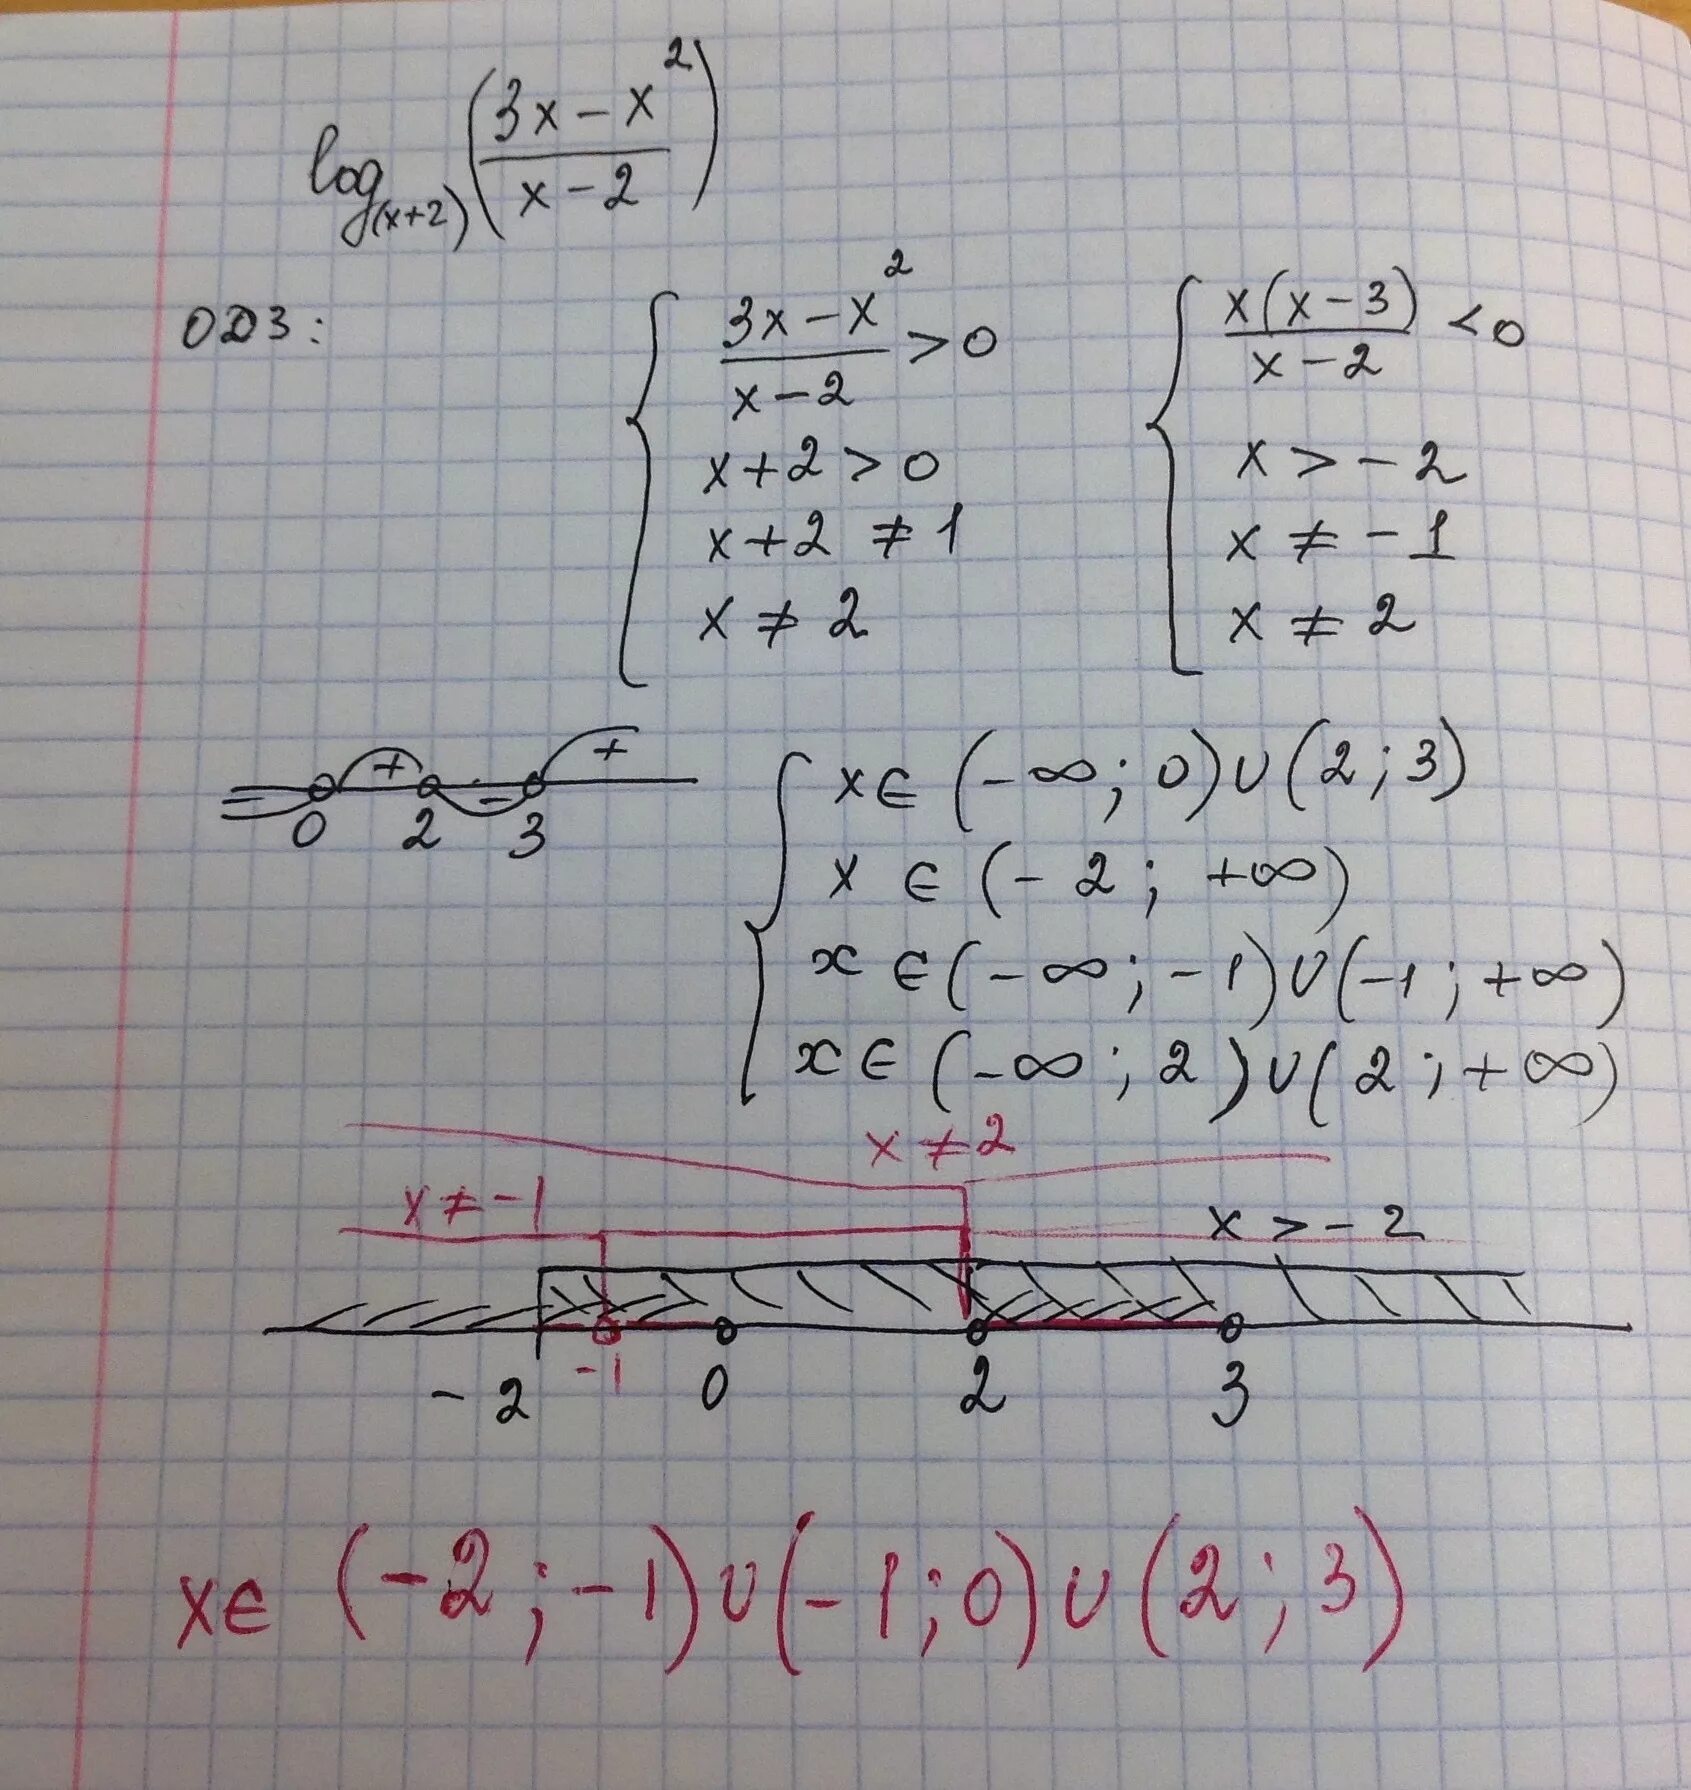 log_(x+2) ((3x-x²)/(x-2))
ОДЗ: { (3x-x²)/(x-2) > 0 { x(x-3)/(x-2) < 0
x+2 > 0 x > -2
x+2 ≠ 1 x ≠ -1
x ≠ 2 x ≠ 2
- + - +
0 2 3
{ x∈(-∞; 0)∪(2; 3)
x ∈ (-2; +∞)
x ∈ (-∞; -1)∪(-1; +∞)
x ∈ (-∞; 2)∪(2; +∞)
x ≠ 2
x ≠ -1 x > -2
-2 -1 0 2 3
x∈ (-2; -1)∪(-1; 0)∪(2; 3)